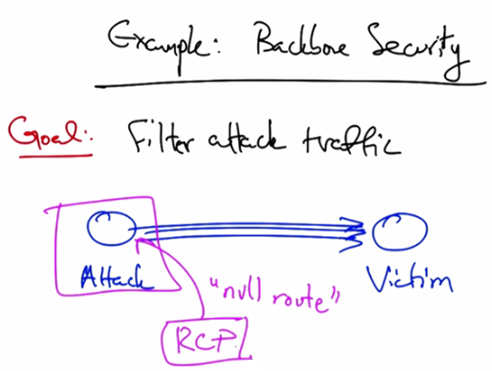 Example: Backbone Security
Goal: Filter attack traffic
Attack
Victim
"null route"
RCP